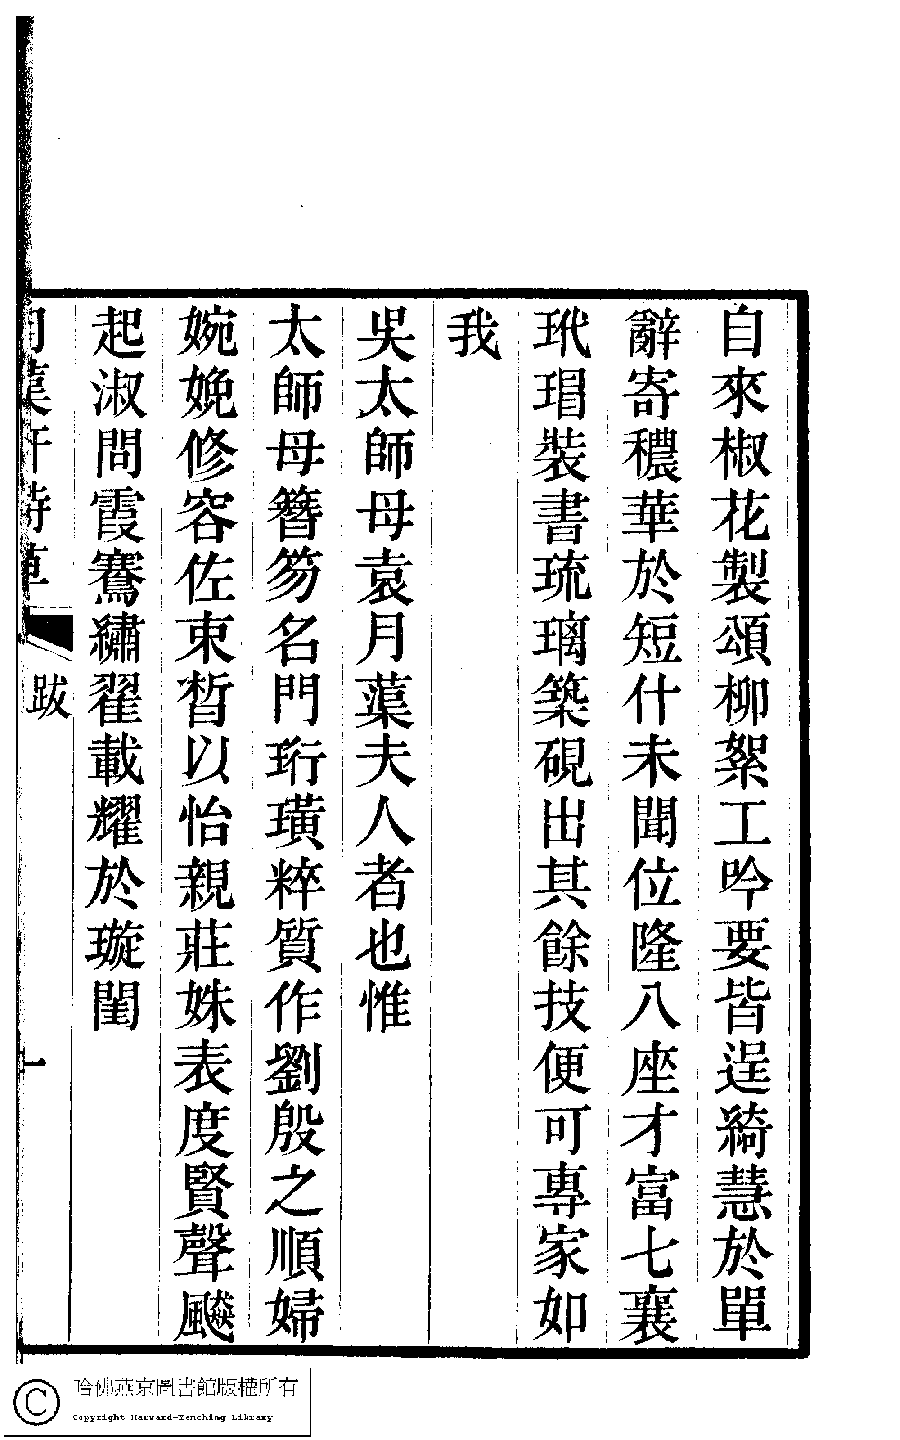 自來椒花製頌柳絮工吟要皆逞綺慧於單
辭寄穠華於短什未聞位隆八座才富七襄
玳瑁裝書琉璃築硯出其餘技便可專家如
我
吳太師母袁月蕖夫人者也惟
太師母簪笏名門珩璜粹質作劉殷之順婦
婉娩修容佐束晳以怡親莊姝表度賢聲飈
起淑問霞騫繡翟載耀於璇閨
跋
一
哈佛燕京圖書館版權所有
Copyright Harvard-Yenching Library